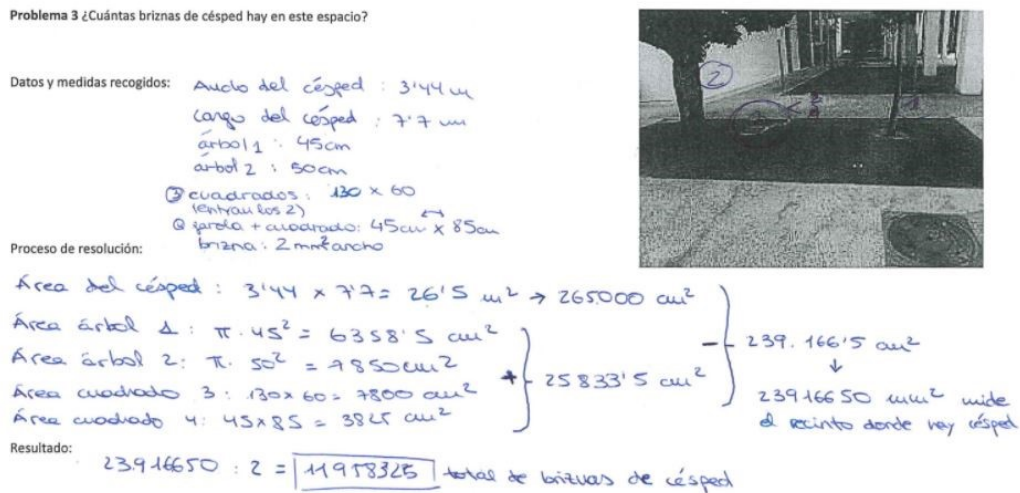 Problema 3 ¿Cuántas briznas de césped hay en este espacio?
2
3
1
Datos y medidas recogidos: Ancho del césped : 3'44 m
Largo del césped : 7'7 m
árbol 1 : 45cm
árbol 2 : 50cm
③ cuadrados : 130 x 60
(entran los 2)
farola + cuadrado: 45cm x 85cm
brizna : 2 mm² ancho
Proceso de resolución:
Área del césped : 3'44 x 7'7 = 26'5 m² → 265000 cm²
Área árbol 1 : π . 45² = 6358'5 cm²
Área árbol 2: π . 50² = 7850 cm²
Área cuadrado 3 : 130 x 60 = 7800 cm²
Área cuadrado 4: 45 x 85 = 3825 cm²
+ 25833'5 cm²
- 239.166'5 cm²
↓
23916650 mm² mide
el recinto donde hay césped
Resultado:
23.916650 : 2 = 11958325 total de briznas de césped